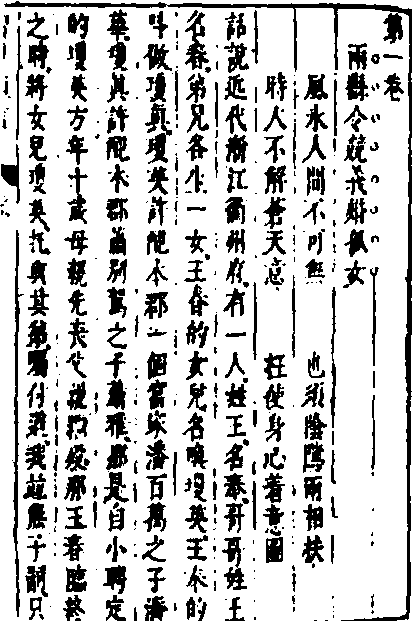 第一卷
兩縣令競義婚孤女
風水人間不可無 也須陰隲兩相扶
時人不解蒼天意 枉使身心着意圖
話說近代浙江衢州府有一人姓王名奉哥哥姓王
名春弟兄各生一女王春的女兒名喚瓊英王奉的
叫做瓊真瓊英許配本郡一個富家潘百萬之子潘
華瓊真許配本郡蕭別駕之子蕭雅都是自小聘定
的瓊英方年十歲母親先喪父親繼歿那王春臨終
之時將女兒瓊英托與其弟囑付道我並無子嗣只